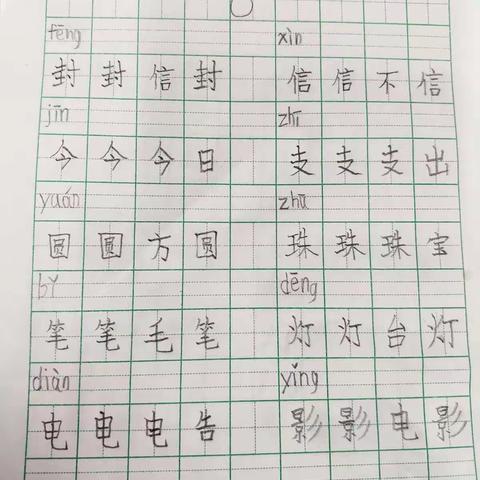 fēng xìn
封 封 信 封 信 信 不 信
jīn zhī
今 今 今 日 支 支 支 出
yuán zhū
圆 圆 方 圆 珠 珠 珠 宝
bǐ dēng
笔 笔 毛 笔 灯 灯 台 灯
diàn yǐng
电 电 电 告 影 影 电 影